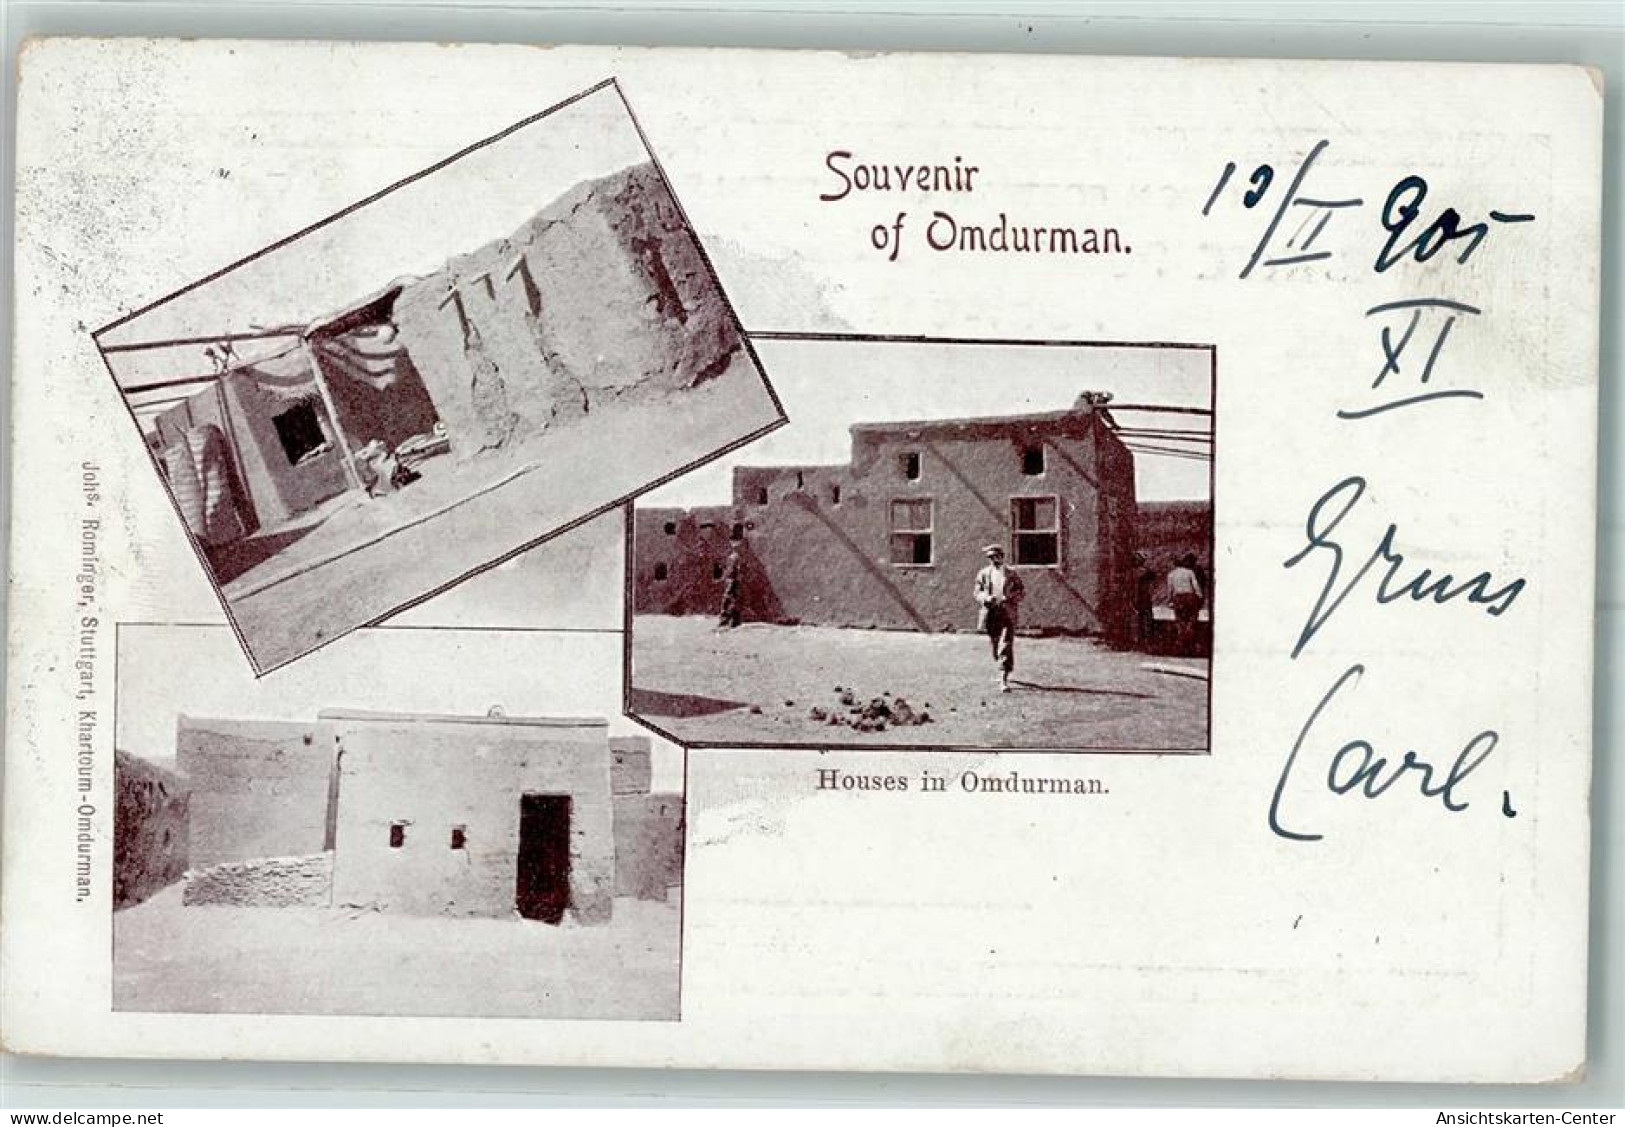 Souvenir
of Omdurman.
10/II 905
XI
Gruss
Carl.
Houses in Omdurman.
Johs. Rominger, Stuttgart, Khartoum-Omdurman.
www.ansichtskartenversand.com
Ansichtskarten-Center